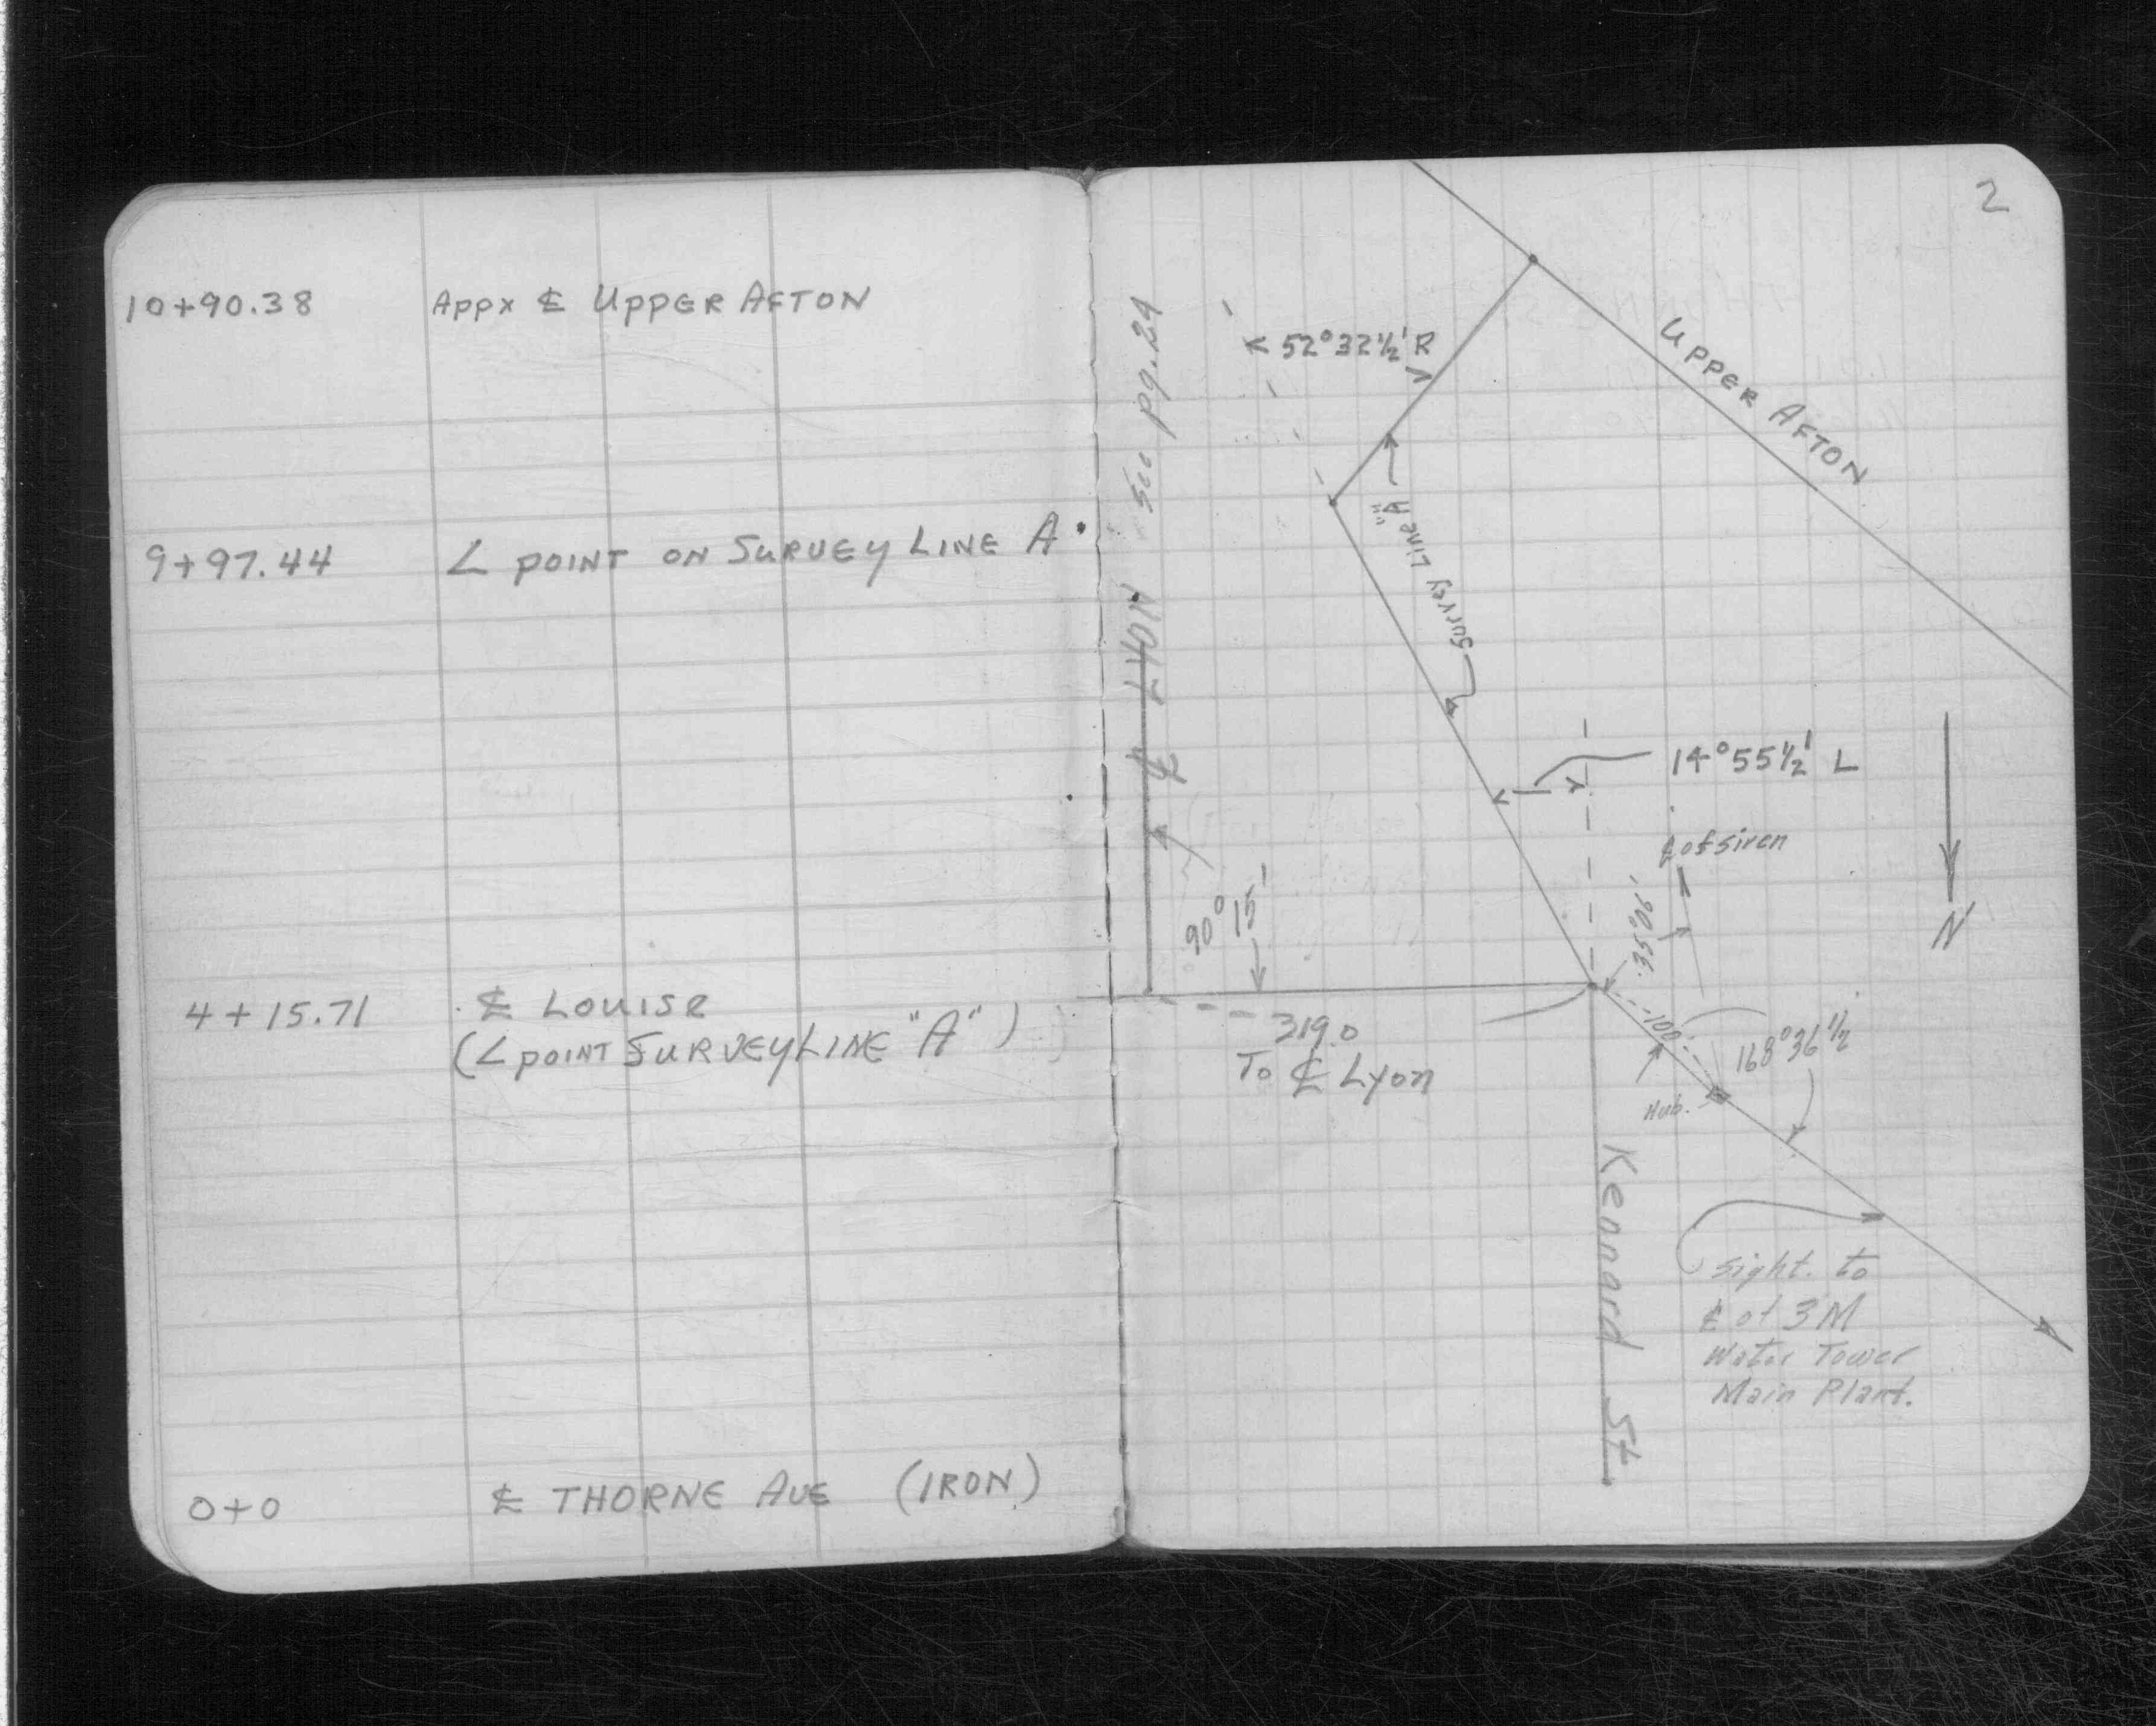 10+90.38 Appx ℄ UPPER AFTON
9+97.44 ∠ POINT ON SURVEY LINE A
4+15.71 ℄ LOUISE
(∠ POINT SURVEY LINE "A")
0+0 ℄ THORNE AVE (IRON)
2
< 52°32½' R
UPPER AFTON
See pg. 24
℄ LYON
Survey Line "A"
14°55½' L
℄ of Siren
N
90°15'
319.0
To ℄ Lyon
100.
168°36½
Hub.
Kennard St.
Sight. to
℄ of 3M
Water Tower
Main Plant.